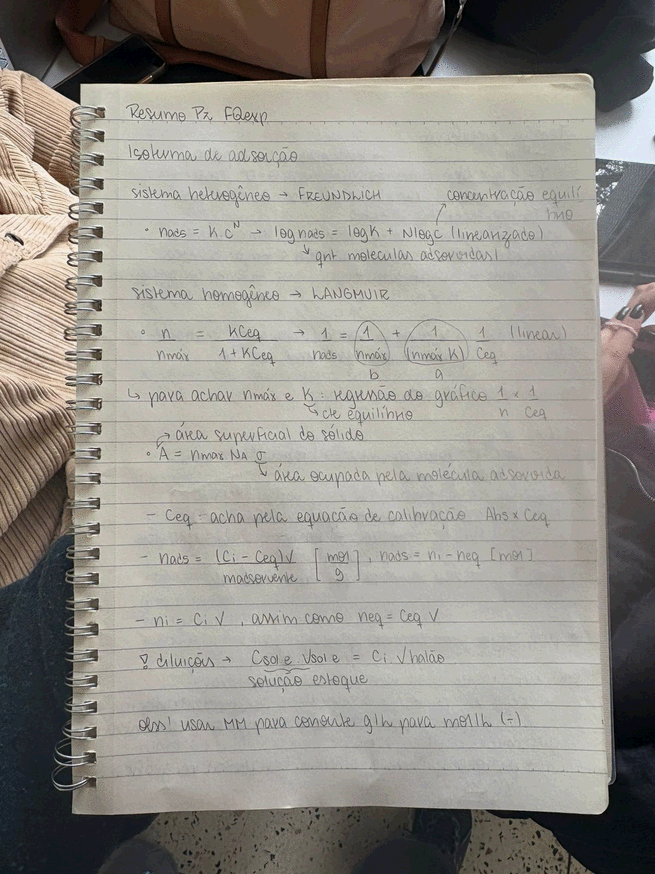 Resumo P2 FQexp
Isoterma de adsorção
sistema heterogêneo → FREUNDLICH
concentração equilí
brio
• nads = K.C^N → log nads = logK + NlogC (linearizado)
↳ qnt moleculas adsorvidas!
sistema homogêneo → LANGMUIR
• n/nmáx = KCeq/(1+KCeq) → 1/nads = 1/nmáx + 1/(nmáx K) 1/Ceq (linear)
b a
↳ para achar nmáx e K: regressão do gráfico 1/n x 1/Ceq
↳ cte equilíbrio
→ área superficial do sólido
• A = nmax NA σ
↳ área ocupada pela molécula adsorvida
- Ceq - acha pela equação de calibração Abs x Ceq
- nads = (Ci - Ceq)V/madsorvente [mol/g], nads = ni - neq [mol]
- ni = Ci V, assim como neq = Ceq V
∇ diluições → Csol e. Vsol e = Ci Vbalão
solução estoque
obs! usar MM para converte g/L para mol/L (-)